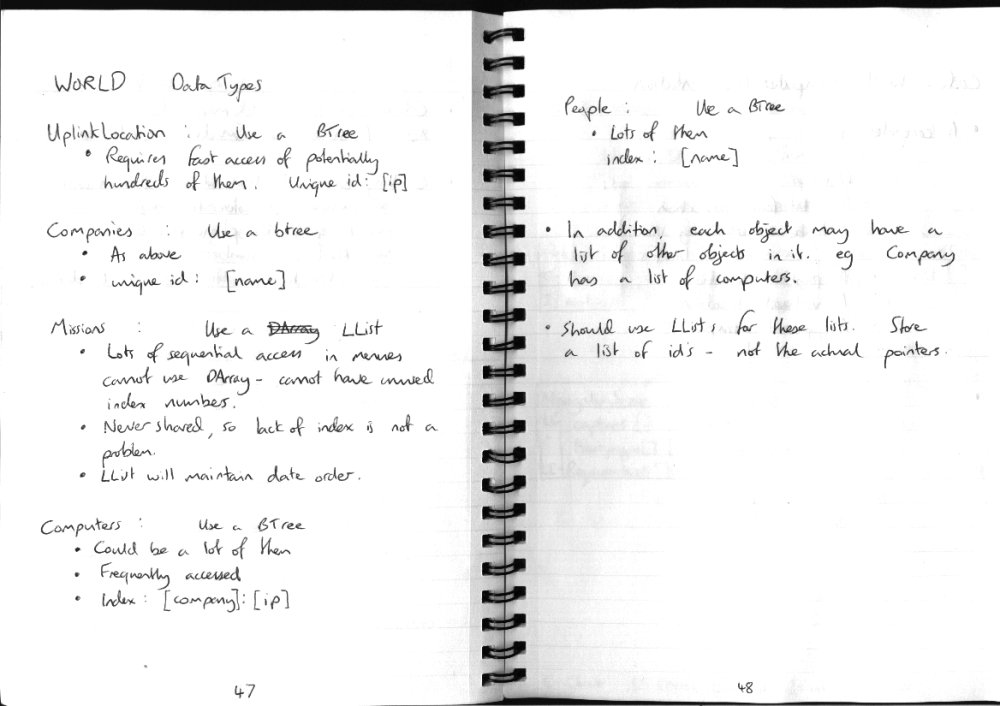 WORLD Data Types
UplinkLocation : Use a BTree
• Requires fast access of potentially
hundreds of them. Unique id: [ip]
Companies : Use a btree
• As above
• unique id: [name]
Missions : Use a DArray LList
• Lots of sequential access in menues
cannot use DArray - cannot have unused
index numbers.
• Never shared, so lack of index is not a
problem.
• LList will maintain date order.
Computers : Use a BTree
• Could be a lot of them
• Frequently accessed
• Index: [company]:[ip]
47
People : Use a BTree
• Lots of them
index: [name]
• In addition, each object may have a
list of other objects in it. eg Company
has a list of computers.
• Should use LLists for these lists. Store
a list of id's - not the actual pointers.
48